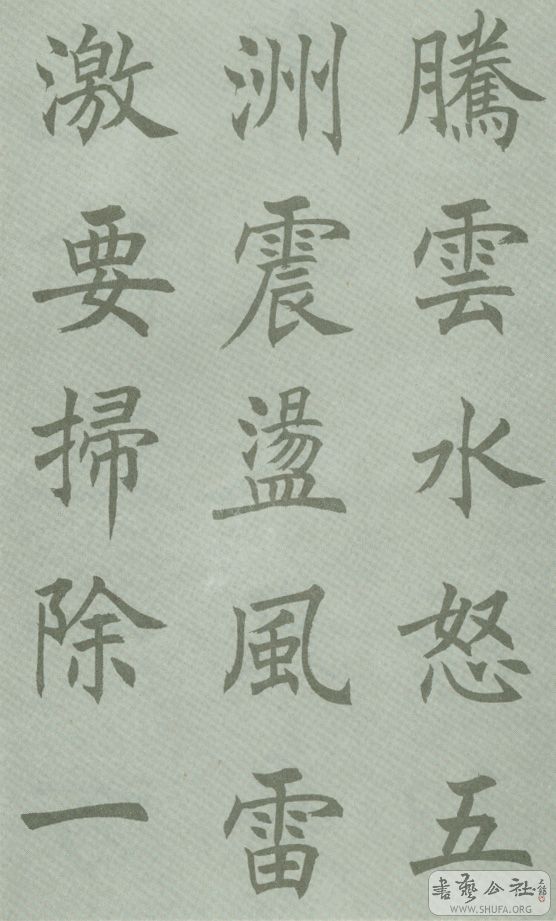 騰雲水怒五
洲震盪風雷
激要掃除一
書藝公社
WWW.SHUFA.ORG